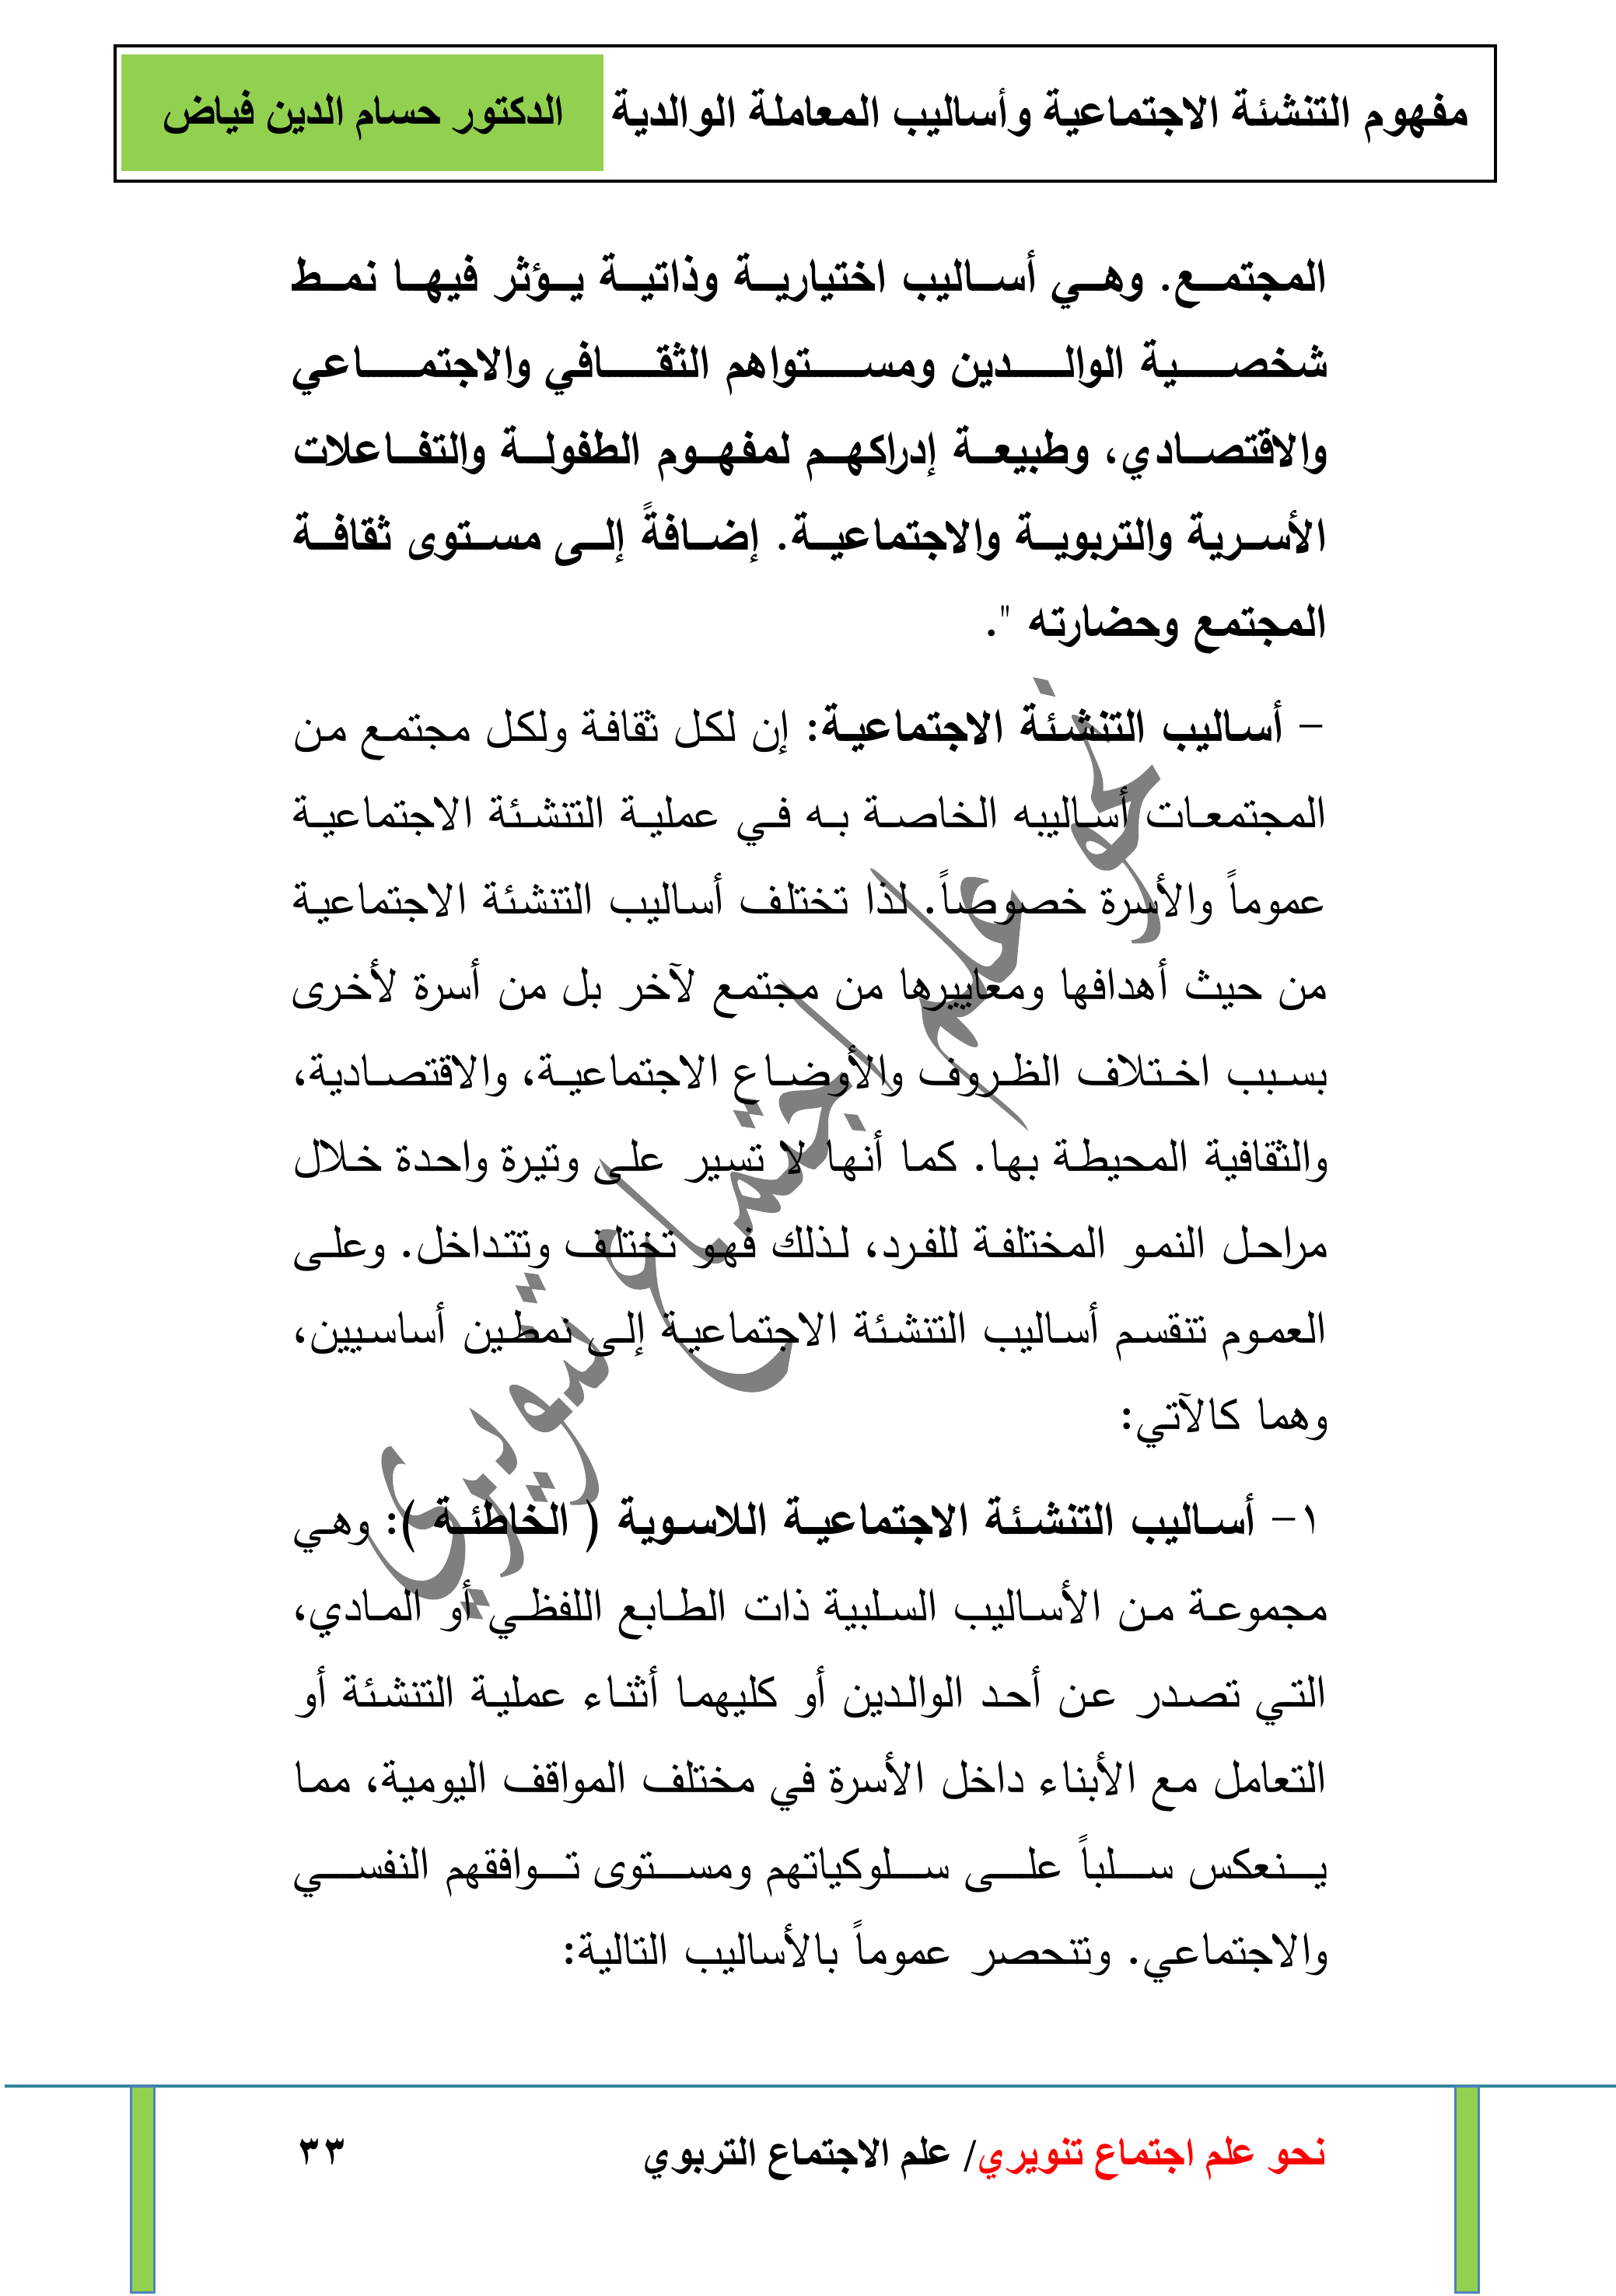 مفهوم التنشئة الاجتماعية وأساليب المعاملة الوالدية الدكتور حسام الدين فياض
المجتمع. وهي أساليب اختيارية وذاتية يؤثر فيها نمط
شخصية الوالدين ومستواهم الثقافي والاجتماعي
والاقتصادي، وطبيعة إدراكهم لمفهوم الطفولة والتفاعلات
الأسرية والتربوية والاجتماعية. إضافةً إلى مستوى ثقافة
المجتمع وحضارته ".
– أساليب التنشئة الاجتماعية: إن لكل ثقافة ولكل مجتمع من
المجتمعات أساليبه الخاصة به في عملية التنشئة الاجتماعية
عموماً والأسرة خصوصاً. لذا تختلف أساليب التنشئة الاجتماعية
من حيث أهدافها ومعاييرها من مجتمع لآخر بل من أسرة لأخرى
بسبب اختلاف الظروف والأوضاع الاجتماعية، والاقتصادية،
والثقافية المحيطة بها. كما أنها لا تسير على وتيرة واحدة خلال
مراحل النمو المختلفة للفرد، لذلك فهو تختلف وتتداخل. وعلى
العموم تنقسم أساليب التنشئة الاجتماعية إلى نمطين أساسيين،
وهما كالآتي:
١– أساليب التنشئة الاجتماعية اللاسوية ( الخاطئة ): وهي
مجموعة من الأساليب السلبية ذات الطابع اللفظي أو المادي،
التي تصدر عن أحد الوالدين أو كليهما أثناء عملية التنشئة أو
التعامل مع الأبناء داخل الأسرة في مختلف المواقف اليومية، مما
ينعكس سلباً على سلوكياتهم ومستوى توافقهم النفسي
والاجتماعي. وتتحصر عموماً بالأساليب التالية:
نحو علم اجتماع تنويري
نحو علم اجتماع تنويري/ علم الاجتماع التربوي ٣٣